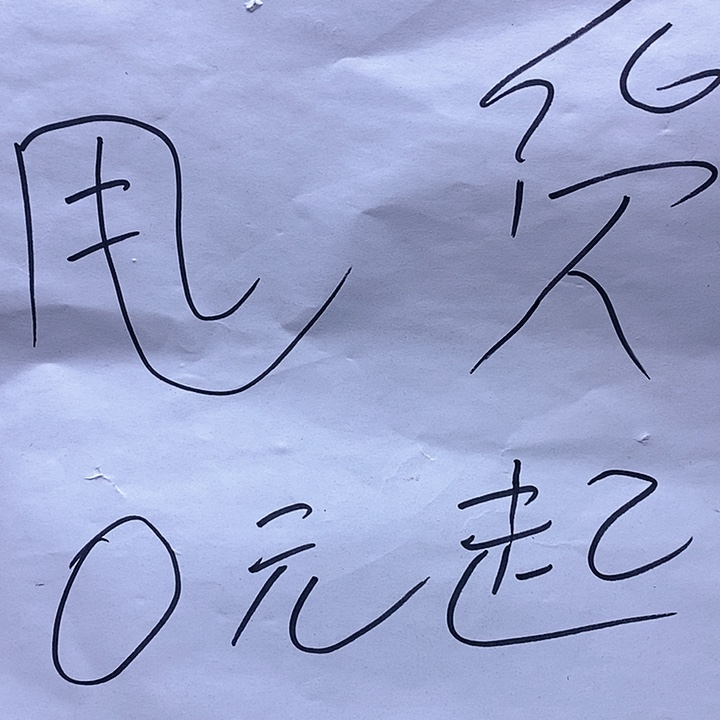 甩货
0元起